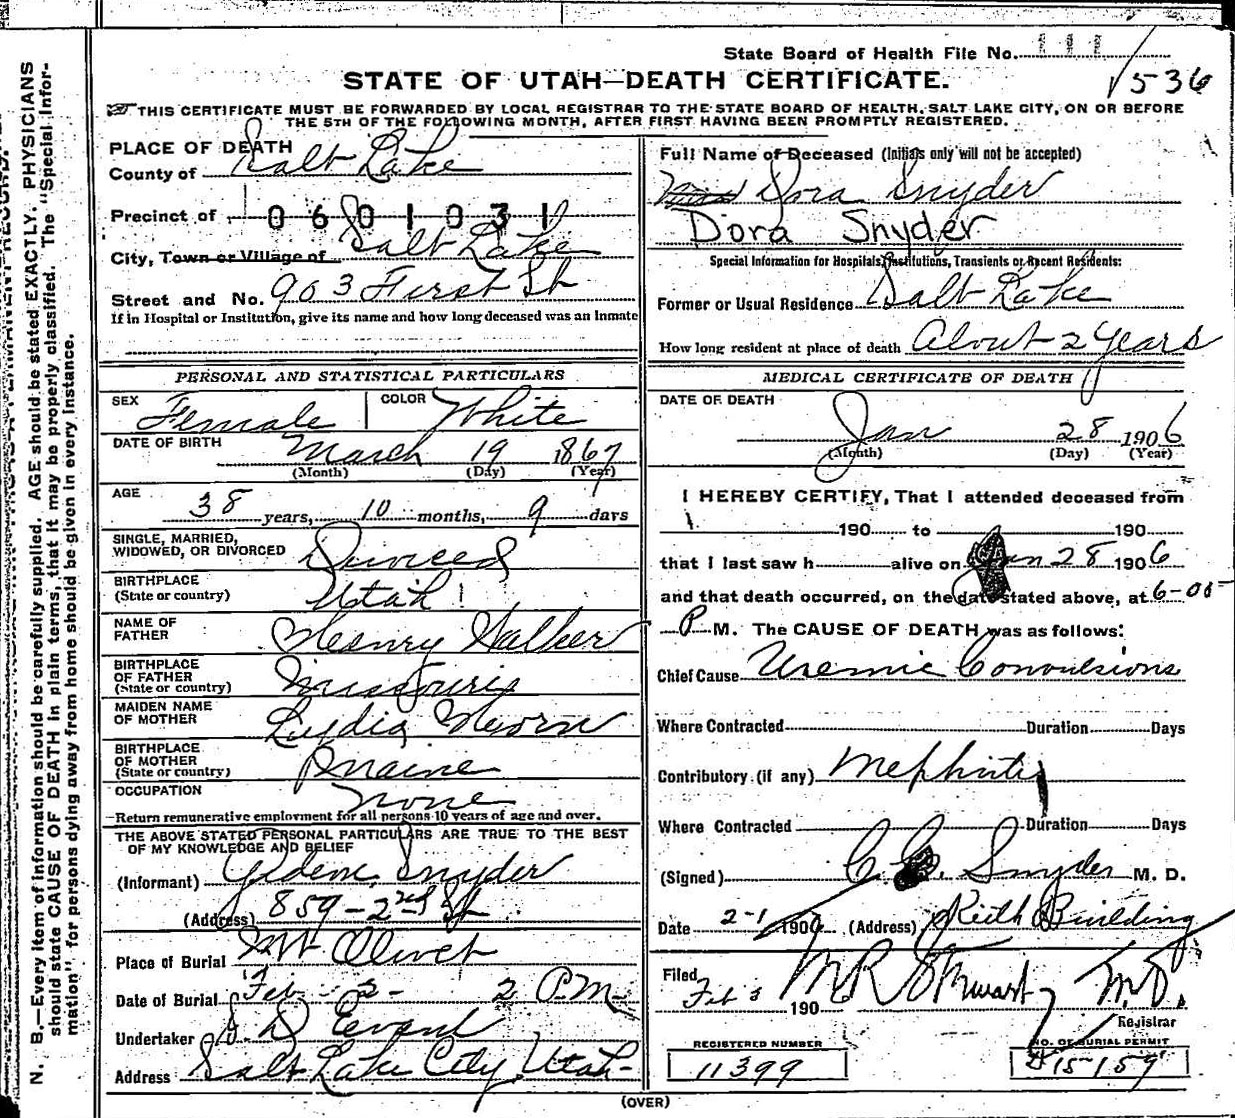 State Board of Health File No. 111
536
STATE OF UTAH—DEATH CERTIFICATE.
THIS CERTIFICATE MUST BE FORWARDED BY LOCAL REGISTRAR TO THE STATE BOARD OF HEALTH, SALT LAKE CITY, ON OR BEFORE
THE 5TH OF THE FOLLOWING MONTH, AFTER FIRST HAVING BEEN PROMPTLY REGISTERED.
PLACE OF DEATH
County of Salt Lake
Precinct of 0601031
City, Town or Village of Salt Lake
Street and No. 903 First St
If in Hospital or Institution, give its name and how long deceased was an Inmate
Full Name of Deceased (Initials only will not be accepted)
Dora Snyder
Dora Snyder
Special Information for Hospitals, Institutions, Transients or Recent Residents:
Former or Usual Residence Salt Lake
How long resident at place of death About 2 Years
PERSONAL AND STATISTICAL PARTICULARS
SEX Female COLOR White
DATE OF BIRTH March 19 1867
(Month) (Day) (Year)
AGE
38 years, 10 months, 9 days
SINGLE, MARRIED,
WIDOWED, OR DIVORCED Divorced
BIRTHPLACE
(State or country) Utah
NAME OF
FATHER Henry Walker
BIRTHPLACE
OF FATHER
(State or country) Missouri
MAIDEN NAME
OF MOTHER Lydia
BIRTHPLACE
OF MOTHER
(State or country) Maine
OCCUPATION None
Return remunerative employment for all persons 10 years of age and over.
THE ABOVE STATED PERSONAL PARTICULARS ARE TRUE TO THE BEST
OF MY KNOWLEDGE AND BELIEF
(Informant) Snyder
(Address) 859 - 2nd St
Place of Burial Mt Olivet
Date of Burial Feb - 2 - 2 P.M.
Undertaker S. D. Evans
Address Salt Lake City, Utah-
MEDICAL CERTIFICATE OF DEATH
DATE OF DEATH
Jan 28 1906
(Month) (Day) (Year)
I HEREBY CERTIFY, That I attended deceased from
190 to 190
that I last saw h alive on Jan 28 1906
and that death occurred, on the date stated above, at 6-05
P M. The CAUSE OF DEATH was as follows:
Chief Cause Uremic Convulsions
Where Contracted Duration Days
Contributory (if any) Nephritis
Where Contracted Duration Days
(Signed) Snyder M. D.
Date 2-1 1906 (Address) Keith Building
Filed Feb 3 190 M R Stewart M.D.
Registrar
REGISTERED NUMBER
11399
NO. OF BURIAL PERMIT
15159
(OVER)
N. B.—Every item of information should be carefully supplied. AGE should be stated EXACTLY. PHYSICIANS
should state CAUSE OF DEATH in plain terms, that it may be properly classified. The "Special Infor-
mation" for persons dying away from home should be given in every instance.